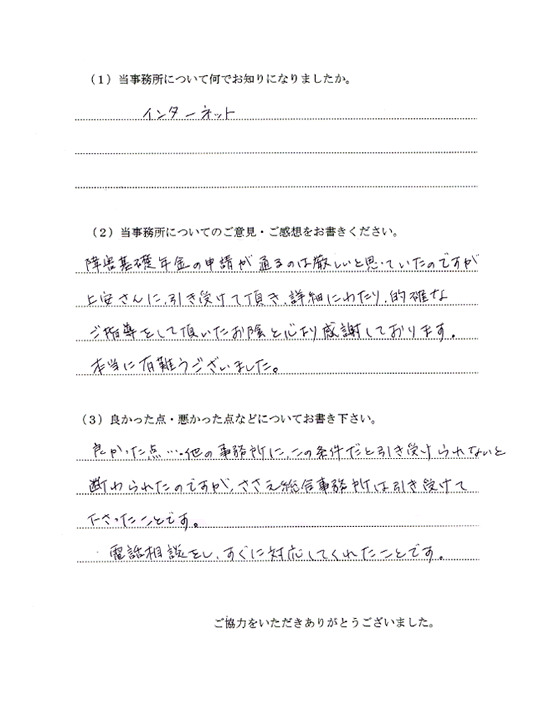 (1)当事務所について何でお知りになりましたか。
インターネット
(2)当事務所についてのご意見・ご感想をお書きください。
障害基礎年金の申請が通るのは厳しいと思っていたのですが
上安さんに、引き受けて頂き、詳細にわたり、的確な
ご指導をして頂いたお陰と心より感謝しております。
本当に有難うございました。
(3)良かった点・悪かった点などについてお書き下さい。
良かった点…他の事務所に、この条件だと引き受けられないと
断わられたのですが、ささえ総合事務所は引き受けて
下さったことです。
・電話相談をし、すぐに対応してくれたことです。
ご協力をいただきありがとうございました。